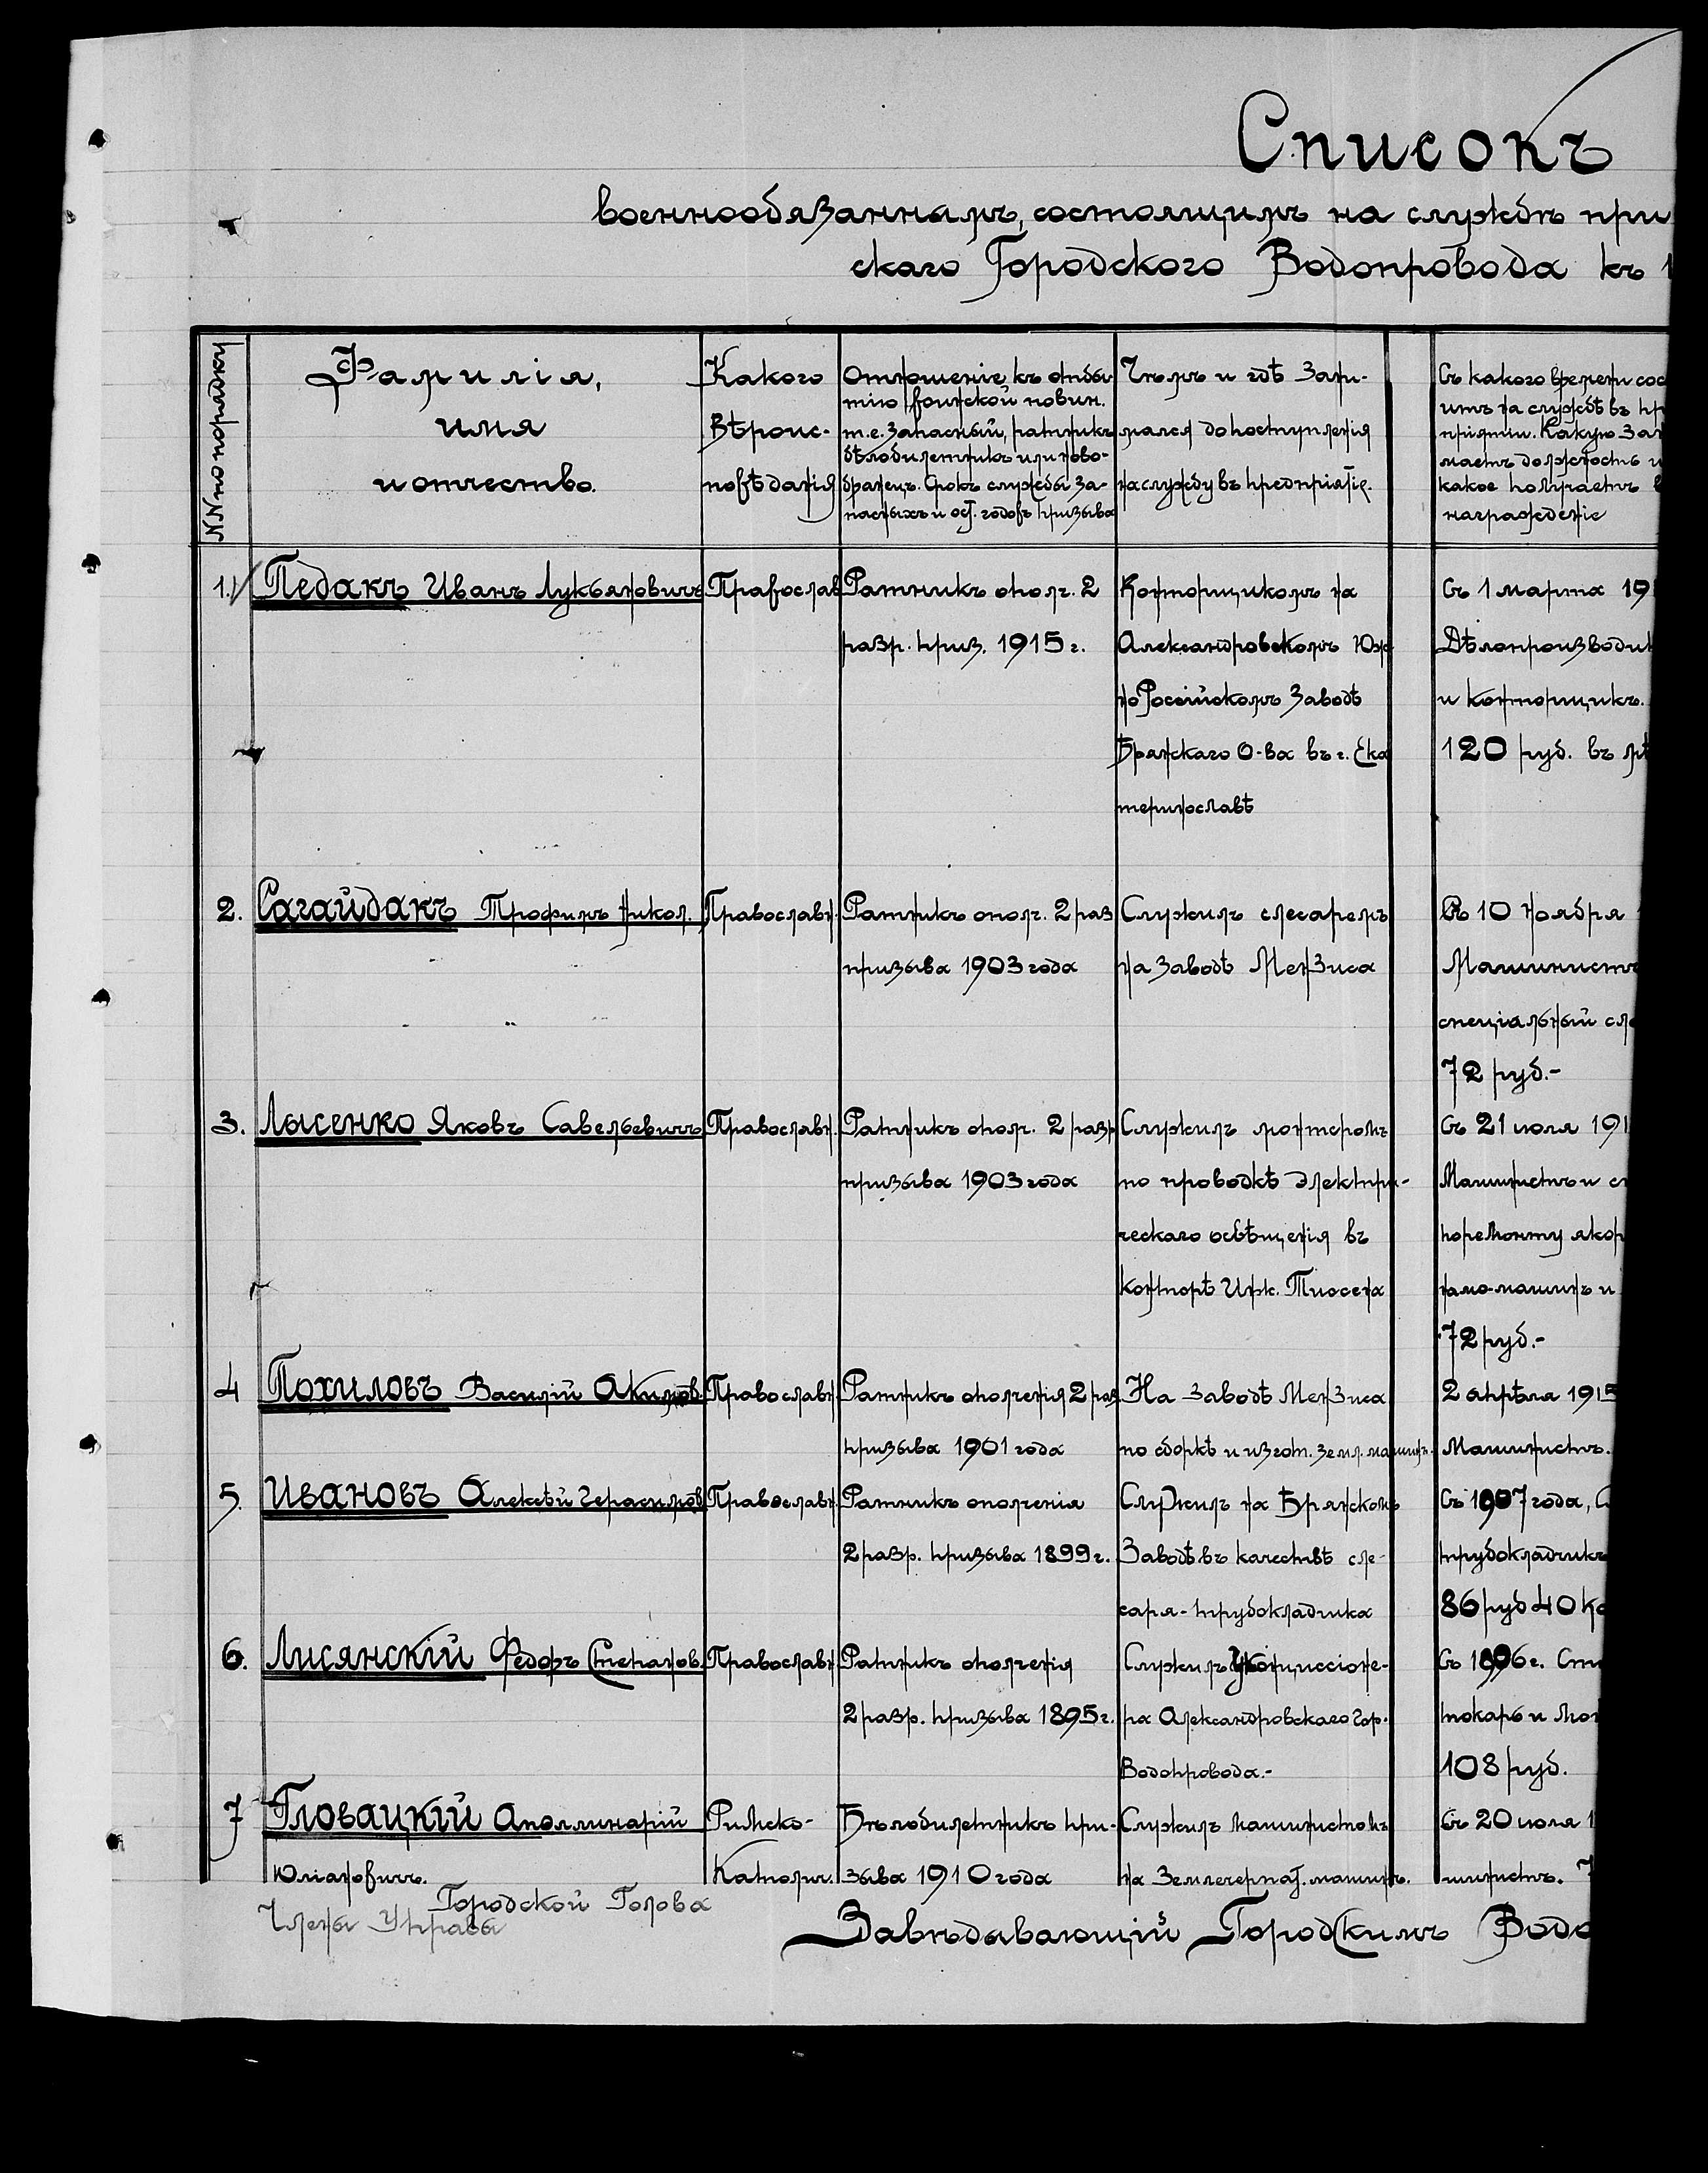 Списокъ
военнообязаннымъ, состоящимъ на службѣ при
скаго Городского Водопровода къ 1
NN по порядку
Фамилія,
имя
и отчество.
Какого
Вѣроис-
повѣданія
Отношеніе къ отбы-
тію воинской повин.
т.е. запасный, ратникъ
бѣлобилетникъ или ново-
бранецъ. Срокъ службы за-
пасныхъ и ост. годовъ призыва
Чѣмъ и гдѣ зани-
мался до поступленія
на службу въ предпріятіе.
Съ какого времени сос
итъ на службѣ въ пр
пріятіи. Какую зан
маетъ должность и
какое получаетъ в
награжденіе
1. Педакъ Иванъ Лукьяновичъ
Православ
Ратникъ опол. 2
разр. приз. 1915 г.
Конторщикомъ на
Александровскомъ Юж
но Россійскомъ Заводѣ
Брянскаго О-ва въ г. Ека
теринославѣ
Съ 1 марта 191
Дѣлопроизводит
и конторщикъ.
120 руб. въ мѣ
2. Сагайдакъ Трофимъ Никол.
Православн.
Ратникъ опол. 2 раз
призыва 1903 года
Служилъ слесаремъ
на Заводѣ Мензиса
Съ 10 Ноября 1
Машинистъ
спеціальный сле
72 руб.-
3. Лысенко Яковъ Савельевичъ
Православн.
Ратникъ опол. 2 разр
призыва 1903 года
Служилъ монтеромъ
по проводкѣ электри-
ческаго освѣщенія въ
конторѣ Инж. Тиосена
Съ 21 июля 191
Машинистъ и сп
по ремонту якор
намо-машинъ и
72 руб.-
4 Похиловъ Василій Акимов.
Православн.
Ратникъ ополченія 2 раз.
призыва 1901 года
На Заводѣ Мензиса
по сборкѣ и изгот. земл. машинъ.
2 апрѣля 1915
Машинистъ.
5. Ивановъ Алексѣй Герасимов
Православн.
Ратникъ ополченія
2 разр. призыва 1899 г.
Служилъ на Брянскомъ
Заводѣ въ качествѣ сле-
саря-трубокладчика
Съ 1907 года, С
трубокладчикъ
86 руб 40 ко
6. Лисянскій Федоръ Степанов.
Православн.
Ратникъ ополченія
2 разр. призыва 1895 г.
Служилъ у концессіоне-
ра Александровскаго Гор.
Водопровода.-
Съ 1896 г. Ст
токарь и мо
108 руб.
7 Гловацкій Аполлинарій
Юліановичъ.
Римско-
Католич.
Бѣлобилетникъ при-
зыва 1910 года
Служилъ машинистомъ
на Землечерпат. машинѣ.
Съ 20 июля 1
шинистъ. 7
Городской Голова
Члены Управы
Завѣдывающій Городскимъ Водо